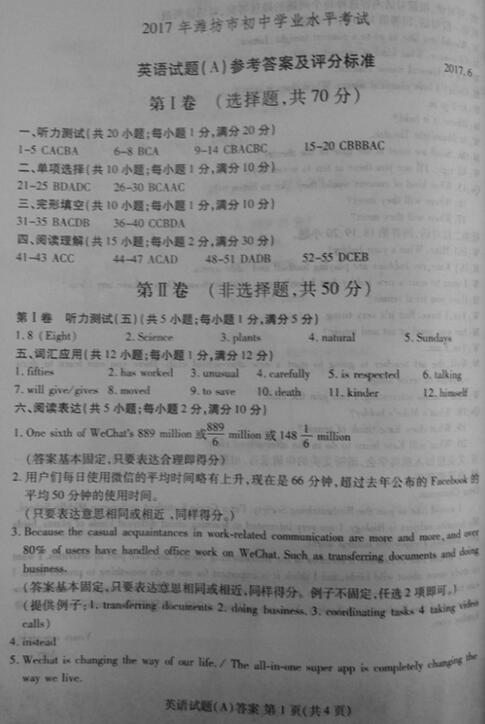 2017年潍坊市初中学业水平考试
英语试题(A)参考答案及评分标准
2017.6
第Ⅰ卷 (选择题,共70分)
一、听力测试(共20小题;每小题1分,满分20分)
1-5 CACBA 6-8 BCA 9-14 CBACBC 15-20 CBBBAC
二、单项选择(共10小题;每小题1分,满分10分)
21-25 BDADC 26-30 BCAAC
三、完形填空(共10小题;每小题1分,满分10分)
31-35 BACDB 36-40 CCBDA
四、阅读理解(共15小题;每小题2分,满分30分)
41-43 ACC 44-47 ACAD 48-51 DADB 52-55 DCEB
第Ⅱ卷 (非选择题,共50分)
第Ⅰ卷 听力测试(五)(共5小题;每小题1分,满分5分)
1. 8 (Eight) 2. Science 3. plants 4. natural 5. Sundays
五、词汇应用(共12小题;每小题1分,满分12分)
1. fifties 2. has worked 3. unusual 4. carefully 5. is respected 6. talking
7. will give/gives 8. moved 9. to save 10. death 11. kinder 12. himself
六、阅读表达(共5小题;每小题2分,满分10分)
1. One sixth of WeChat's 889 million 或 889/6 million 或 148 1/6 million
(答案基本固定,只要表达合理即得分)
2. 用户们每日使用微信的平均时间略有上升,现在是66分钟,超过去年公布的Facebook的
平均50分钟的使用时间。
(只要表达意思相同或相近,同样得分。)
3. Because the casual acquaintances in work-related communication are more and more, and over
80% of users have handled office work on WeChat. Such as transferring documents and doing
business.
(答案基本固定,只要表达意思相同或相近,同样得分。例子不固定,任选2项即可。)
(提供例子:1. transferring documents 2. doing business. 3. coordinating tasks 4 taking video
calls)
4. instead
5. Wechat is changing the way of our life. / The all-in-one super app is completely changing the
way we live.
英语试题(A)答案 第1页(共4页)